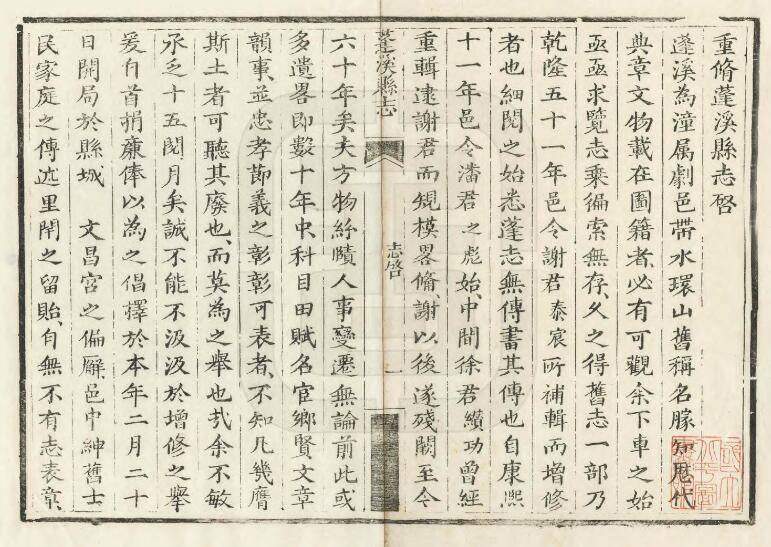 重脩蓬溪縣志啓
蓬溪為潼属劇邑帶水環山舊稱名勝知歷代
典章文物載在圖籍者必有可觀余下車之始
亟亟求覽志乘徧索無存久之得舊志一部乃
乾隆五十一年邑令謝君泰宸所補輯而增修
者也細閱之始悉蓬志無傳書其傳也自康熙
十一年邑令潘君之彪始中間徐君纘功曾經
重輯逮謝君而規模畧脩謝以後遂殘闕至今
蓬溪縣志
志啓
一
六十年矣夫方物紛賾人事變遷無論前此或
多遺畧即數十年中科目田賦名宦鄉賢文章
韻事並忠孝節義之彰彰可表者不知凡幾膺
斯土者可聽其廢也而莫為之舉也哉余不敏
承乏十五閱月矣誠不能不汲汲於增修之舉
爰自首捐廉俸以為之倡擇於本年二月二十
日開局於縣城 文昌宮之偏廨邑中紳舊士
民家庭之傳述里閈之留貽自無不有志表章